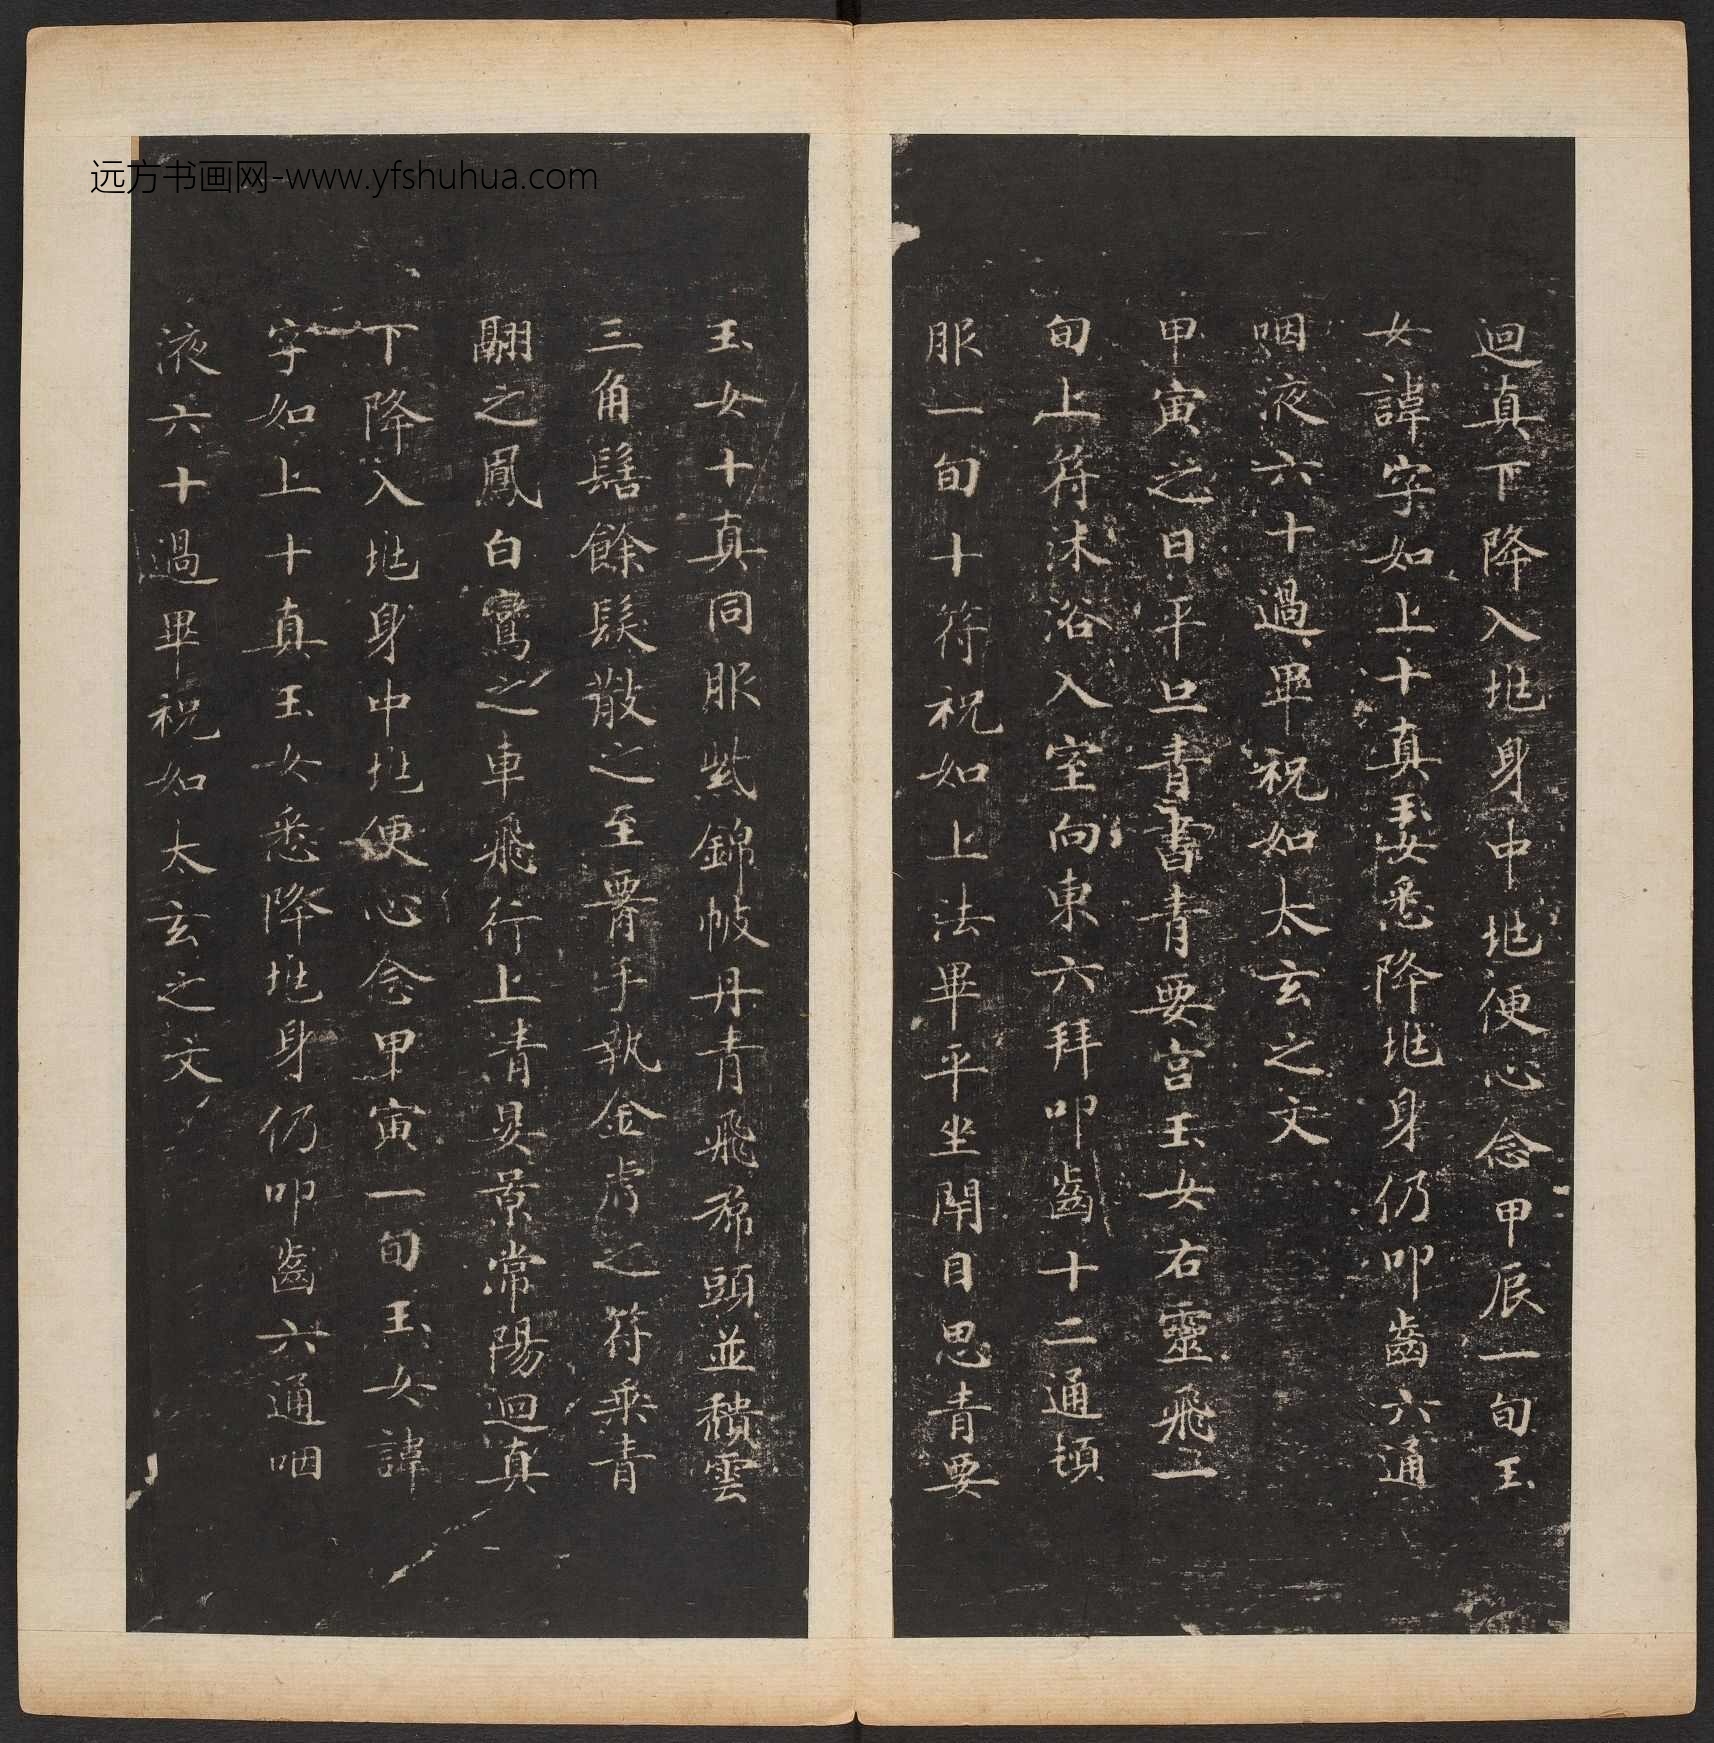 远方书画网-www.yfshuhua.com
迴真下降入兆身中兆便心念甲辰一旬玉
女諱字如上十真玉女悉降兆身仍叩齒六通
咽液六十過畢祝如太玄之文
甲寅之日平旦青書青要宫玉女右靈飛一
旬上符沐浴入室向東六拜叩齒十二通頓
服一旬十符祝如上法畢平坐閉目思青要
玉女十真同服紫錦帔丹青飛帬頭並穨雲
三角髻餘髮散之至霄手執金虎之符乘青
翮之鳳白鸞之車飛行上清晏景常陽迴真
下降入兆身中兆便心念甲寅一旬玉女諱
字如上十真玉女悉降兆身仍叩齒六通咽
液六十過畢祝如太玄之文